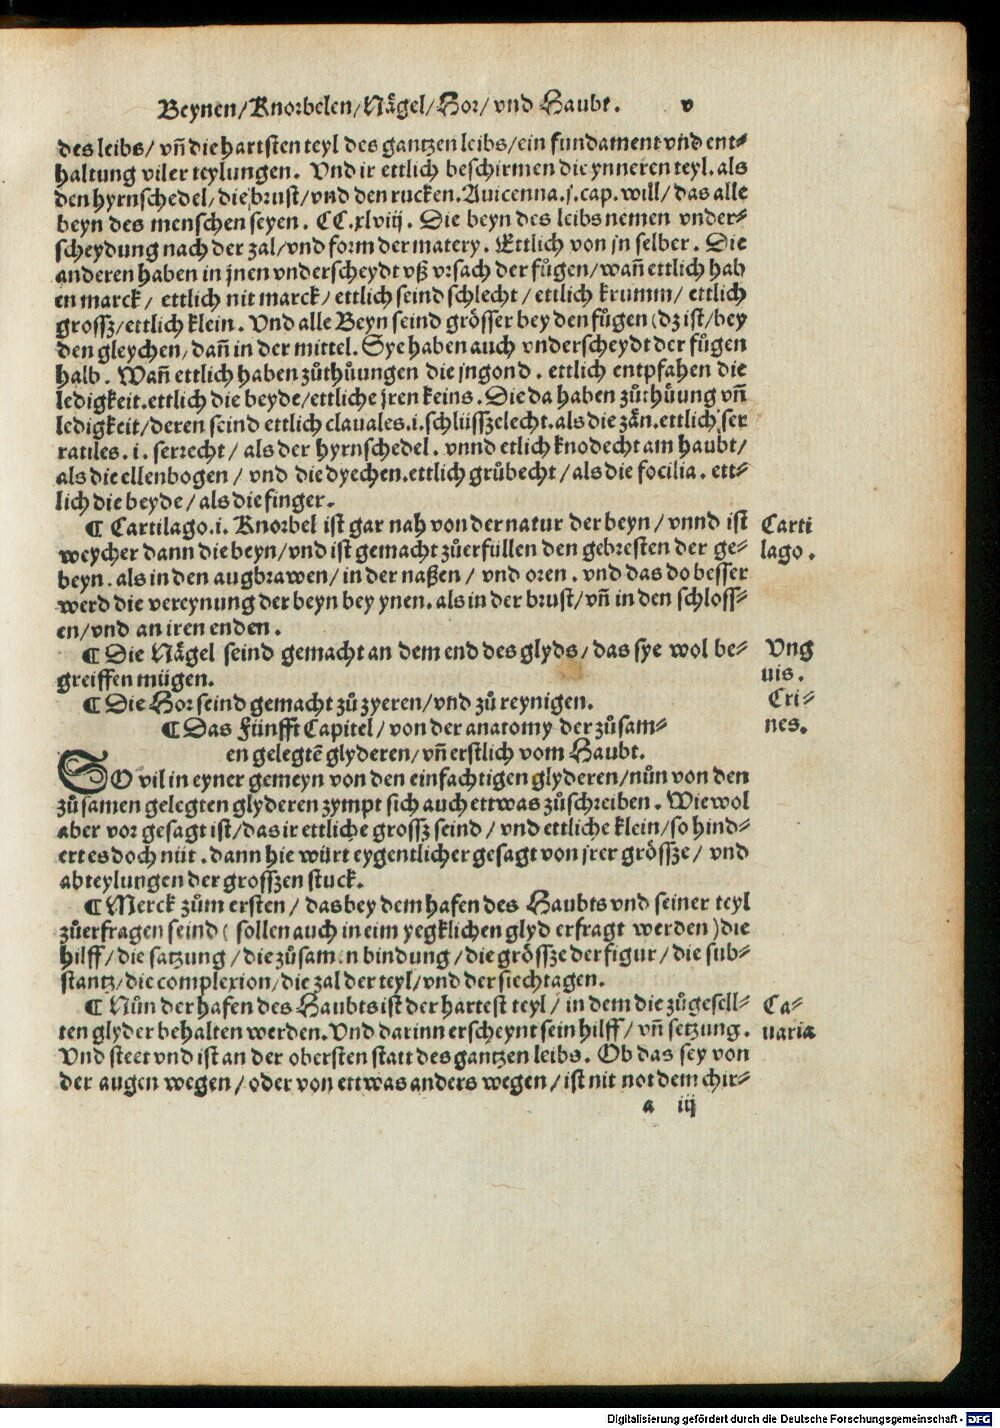 Beynen/Knorbelen/Nägel/Hor/vnd Haubt. v
des leibs/ vñ die hartsten teyl des gantzen leibs/ein fundament vnd ent⸗
haltung viler teylungen. Vnd ir ettlich beschirmen die ynneren teyl. als
den hyrnschedel/die brust/vnd den rucken. Auicenna.j.cap.will/das alle
beyn des menschen seyen. CC.xlviij. Die beyn des leibs nemen vnder⸗
scheydung nach der zal/vnd form der matery. Ettlich von jn selber. Die
anderen haben in jnen vnderscheydt vß vrsach der fůgen/wañ ettlich hab
en marck/ ettlich nit marck/ettlich seind schlecht/ettlich krumm/ ettlich
grossz/ettlich klein. Vnd alle Beyn seind grösser bey den fůgen (dz ist/bey
den gleychen/dañ in der mittel. Sye haben auch vnderscheydt der fůgen
halb. Wañ ettlich haben zůthůungen die jngond. ettlich entpfahen die
ledigkeit.ettlich die beyde/ettliche jren keins. Die da haben zůthůung vñ
ledigkeit/deren seind ettlich clauales.i.schlüsszelecht.als die zän.ettlich ser
ratiles.i. serrecht/als der hyrnschedel. vnnd etlich knodecht am haubt/
als die ellenbogen/ vnd die dyechen.ettlich grůbecht/als die focilia. ett⸗
lich die beyde/als die finger.
¶ Cartilago.i. Knorbel ist gar nah von der natur der beyn/vnnd ist
Carti
weycher dann die beyn/vnd ist gemacht zůerfüllen den gebresten der ge⸗
lago.
beyn. als in den augbrawen/in der naßen/ vnd oren. vnd das do besser
werd die vereynung der beyn bey ynen. als in der brust/vñ in den schloss⸗
en/vnd an iren enden.
¶ Die Nägel seind gemacht an dem end des glyds/das sye wol be⸗
Vng
greiffen mügen.
uis.
¶ Die Hor seind gemacht zů zyeren/vnd zů reynigen.
Cri⸗
¶ Das Fünfft Capitel/von der anatomy der zůsam⸗
nes.
en gelegtē glyderen/vñ erstlich vom Haubt.
SO vil in eyner gemeyn von den einfachtigen glyderen/nůn von den
zůsamen gelegten glyderen zympt sich auch ettwas zůschreiben. Wiewol
aber vor gesagt ist/das ir ettliche grossz seind/vnd ettliche klein/so hind⸗
ert es doch nüt. dann hie würt eygentlicher gesagt von jrer grössze/ vnd
abteylungen der grosszen stuck.
¶ Merck zům ersten/das bey dem hafen des Haubts vnd seiner teyl
zůerfragen seind (sollen auch in eim yegklichen glyd erfragt werden) die
hilff/die satzung/die zůsamen bindung/die grössze der figur/die sub⸗
stantz/die complexion/die zal der teyl/vnd der siechtagen.
¶ Nůn der hafen des Haubts ist der hartest teyl/in dem die zůgesell⸗
Ca⸗
ten glyder behalten werden. Vnd darinn erscheynt sein hilff/vñ setzung.
uaria
Vnd steet vnd ist an der obersten statt des gantzen leibs. Ob das sey von
der augen wegen/oder von ettwas anders wegen/ist nit not dem chir⸗
a iij
Digitalisierung gefördert durch die Deutsche Forschungsgemeinschaft - DFG